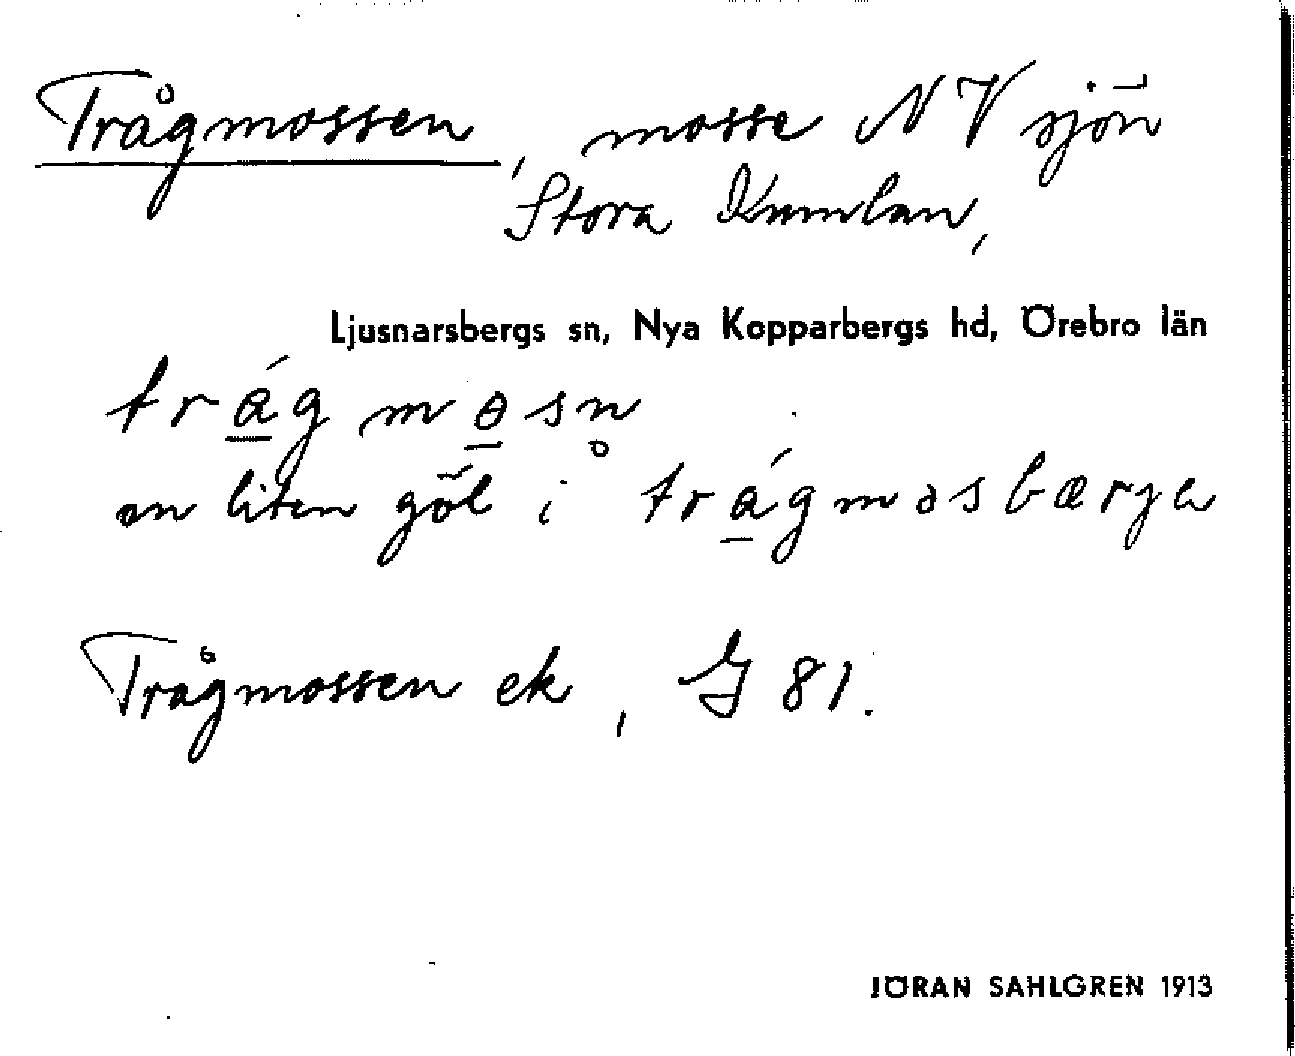 Trågmossen, mosse NV sjön
Stora Kumlan,
Ljusnarsbergs sn, Nya Kopparbergs hd, Örebro län
trá̱g mo̱sn̥
en liten göl i trá̱gmosbærja
Trågmossen ek, G 81.
JÖRAN SAHLGREN 1913